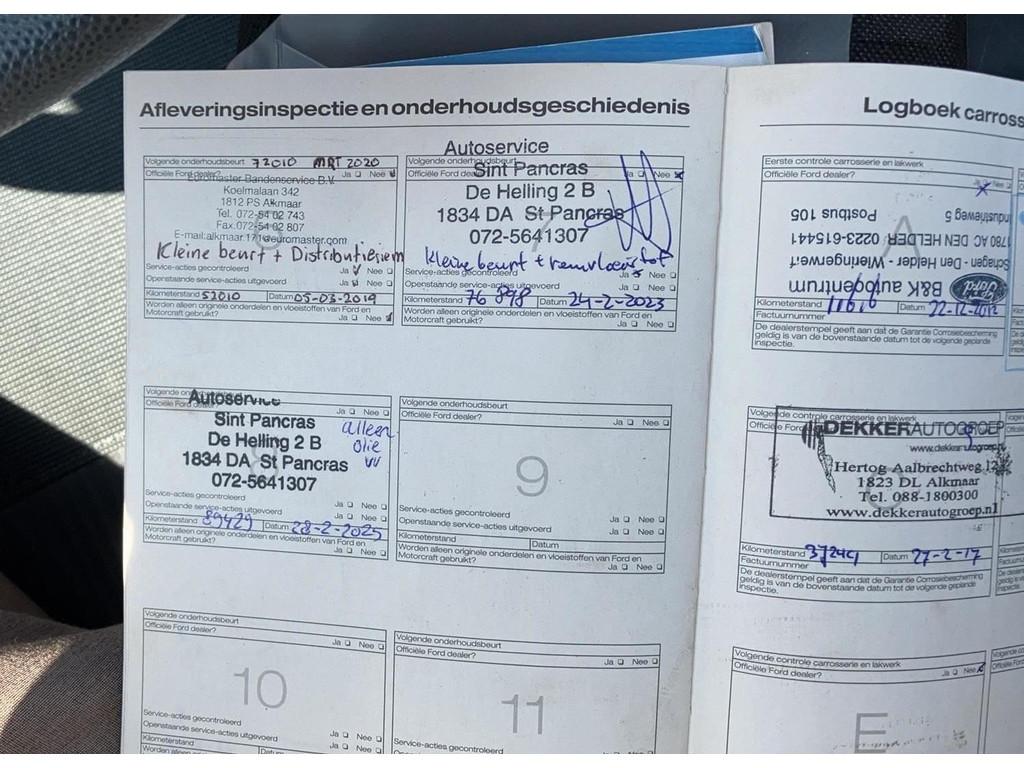 Afleveringsinspectie en onderhoudsgeschiedenis
Volgende onderhoudsbeurt 72010 MRT 2020
Officiële Ford dealer? Ja Nee
Euromaster Bandenservice B.V.
Koelmalaan 342
1812 PS Alkmaar
Tel. 072-54 02 743
Fax.072-54 02 807
E-mail:alkmaar.171@euromaster.com
Kleine beurt + Distributieriem
Service-acties gecontroleerd Ja Nee
Openstaande service-acties uitgevoerd Ja Nee
Kilometerstand 52010 Datum 05-03-2019
Worden alleen originele onderdelen en vloeistoffen van Ford en
Motorcraft gebruikt? Ja Nee
Autoservice
Volgende onderhoudsbeurt
Sint Pancras
Officiële Ford dealer? Ja Nee
De Helling 2 B
1834 DA St Pancras
072-5641307
Kleine beurt + remvloeistof
Service-acties gecontroleerd Ja Nee
Openstaande service-acties uitgevoerd Ja Nee
Kilometerstand 76 898 Datum 24-2-2023
Worden alleen originele onderdelen en vloeistoffen van Ford en
Motorcraft gebruikt? Ja Nee
Volgende onderhoudsbeurt
Autoservice
Officiële Ford dealer? Ja Nee
Sint Pancras
De Helling 2 B
1834 DA St Pancras
072-5641307
alleen
olie
Service-acties gecontroleerd Ja Nee
Openstaande service-acties uitgevoerd Ja Nee
Kilometerstand 89429 Datum 28-2-2025
Worden alleen originele onderdelen en vloeistoffen van Ford en
Motorcraft gebruikt? Ja Nee
Volgende onderhoudsbeurt
Officiële Ford dealer? Ja Nee
9
Service-acties gecontroleerd Ja Nee
Openstaande service-acties uitgevoerd Ja Nee
Kilometerstand Datum
Worden alleen originele onderdelen en vloeistoffen van Ford en
Motorcraft gebruikt? Ja Nee
Volgende onderhoudsbeurt
Officiële Ford dealer? Ja Nee
10
Service-acties gecontroleerd
Openstaande service-acties uitgevoerd Ja Nee
Kilometerstand Datum Ja Nee
Worden alleen originele onderdelen en
Volgende onderhoudsbeurt
Officiële Ford dealer? Ja Nee
11
Service-acties gecontroleerd
Logboek carross
Eerste controle carrosserie en lakwerk
Officiële Ford dealer? Ja Nee
A
Ford
B&K autocentrum
Schagen - Den Helder - Wieringerwerf
1780 AC DEN HELDER 0223-615441
Industrieweg 5 Postbus 105
Kilometerstand 11616 Datum 22-12-2012
Factuurnummer
De dealerstempel geeft aan dat de Garantie Corrosiebescherming
geldig is van de bovenstaande datum tot de volgende geplande
inspectie.
Volgende controle carrosserie en lakwerk
Officiële Ford
DEKKERAUTOGROEP
www.dekkerautogroep.nl
Hertog Aalbrechtweg 12
1823 DL Alkmaar
Tel. 088-1800300
www.dekkerautogroep.nl
Kilometerstand 37249 Datum 27-2-17
Factuurnummer
De dealerstempel geeft aan dat de Garantie Corrosiebescherming
geldig is van de bovenstaande datum tot de volgende geplande
inspectie.
Volgende controle carrosserie en lakwerk
Officiële Ford dealer? Ja Nee
E